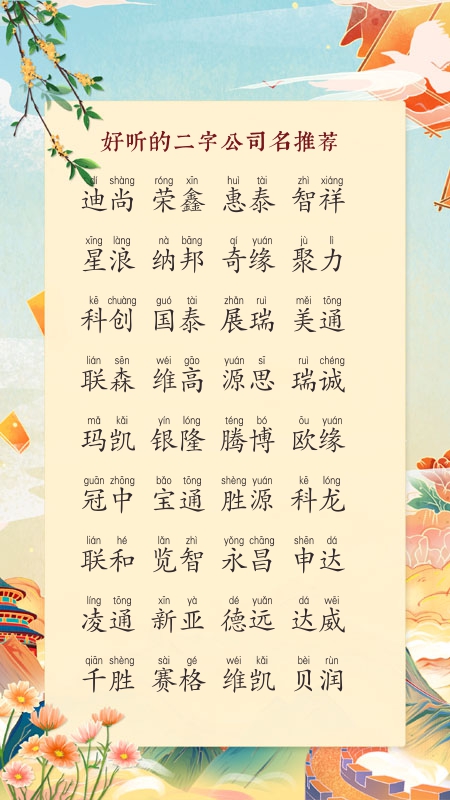 好听的二字公司名推荐
dí shàng róng xīn huì tài zhì xiáng
迪尚 荣鑫 惠泰 智祥
xīng làng nà bāng qí yuán jù lì
星浪 纳邦 奇缘 聚力
kē chuàng guó tài zhǎn ruì měi tōng
科创 国泰 展瑞 美通
lián sēn wéi gāo yuán sī ruì chéng
联森 维高 源思 瑞诚
mǎ kǎi yín lóng téng bó ōu yuán
玛凯 银隆 腾博 欧缘
guān zhōng bǎo tōng shèng yuán kē lóng
冠中 宝通 胜源 科龙
lián hé lǎn zhì yǒng chāng shēn dá
联和 览智 永昌 申达
líng tōng xīn yà dé yuǎn dá wēi
凌通 新亚 德远 达威
qiān shèng sài gé wéi kǎi bèi rùn
千胜 赛格 维凯 贝润